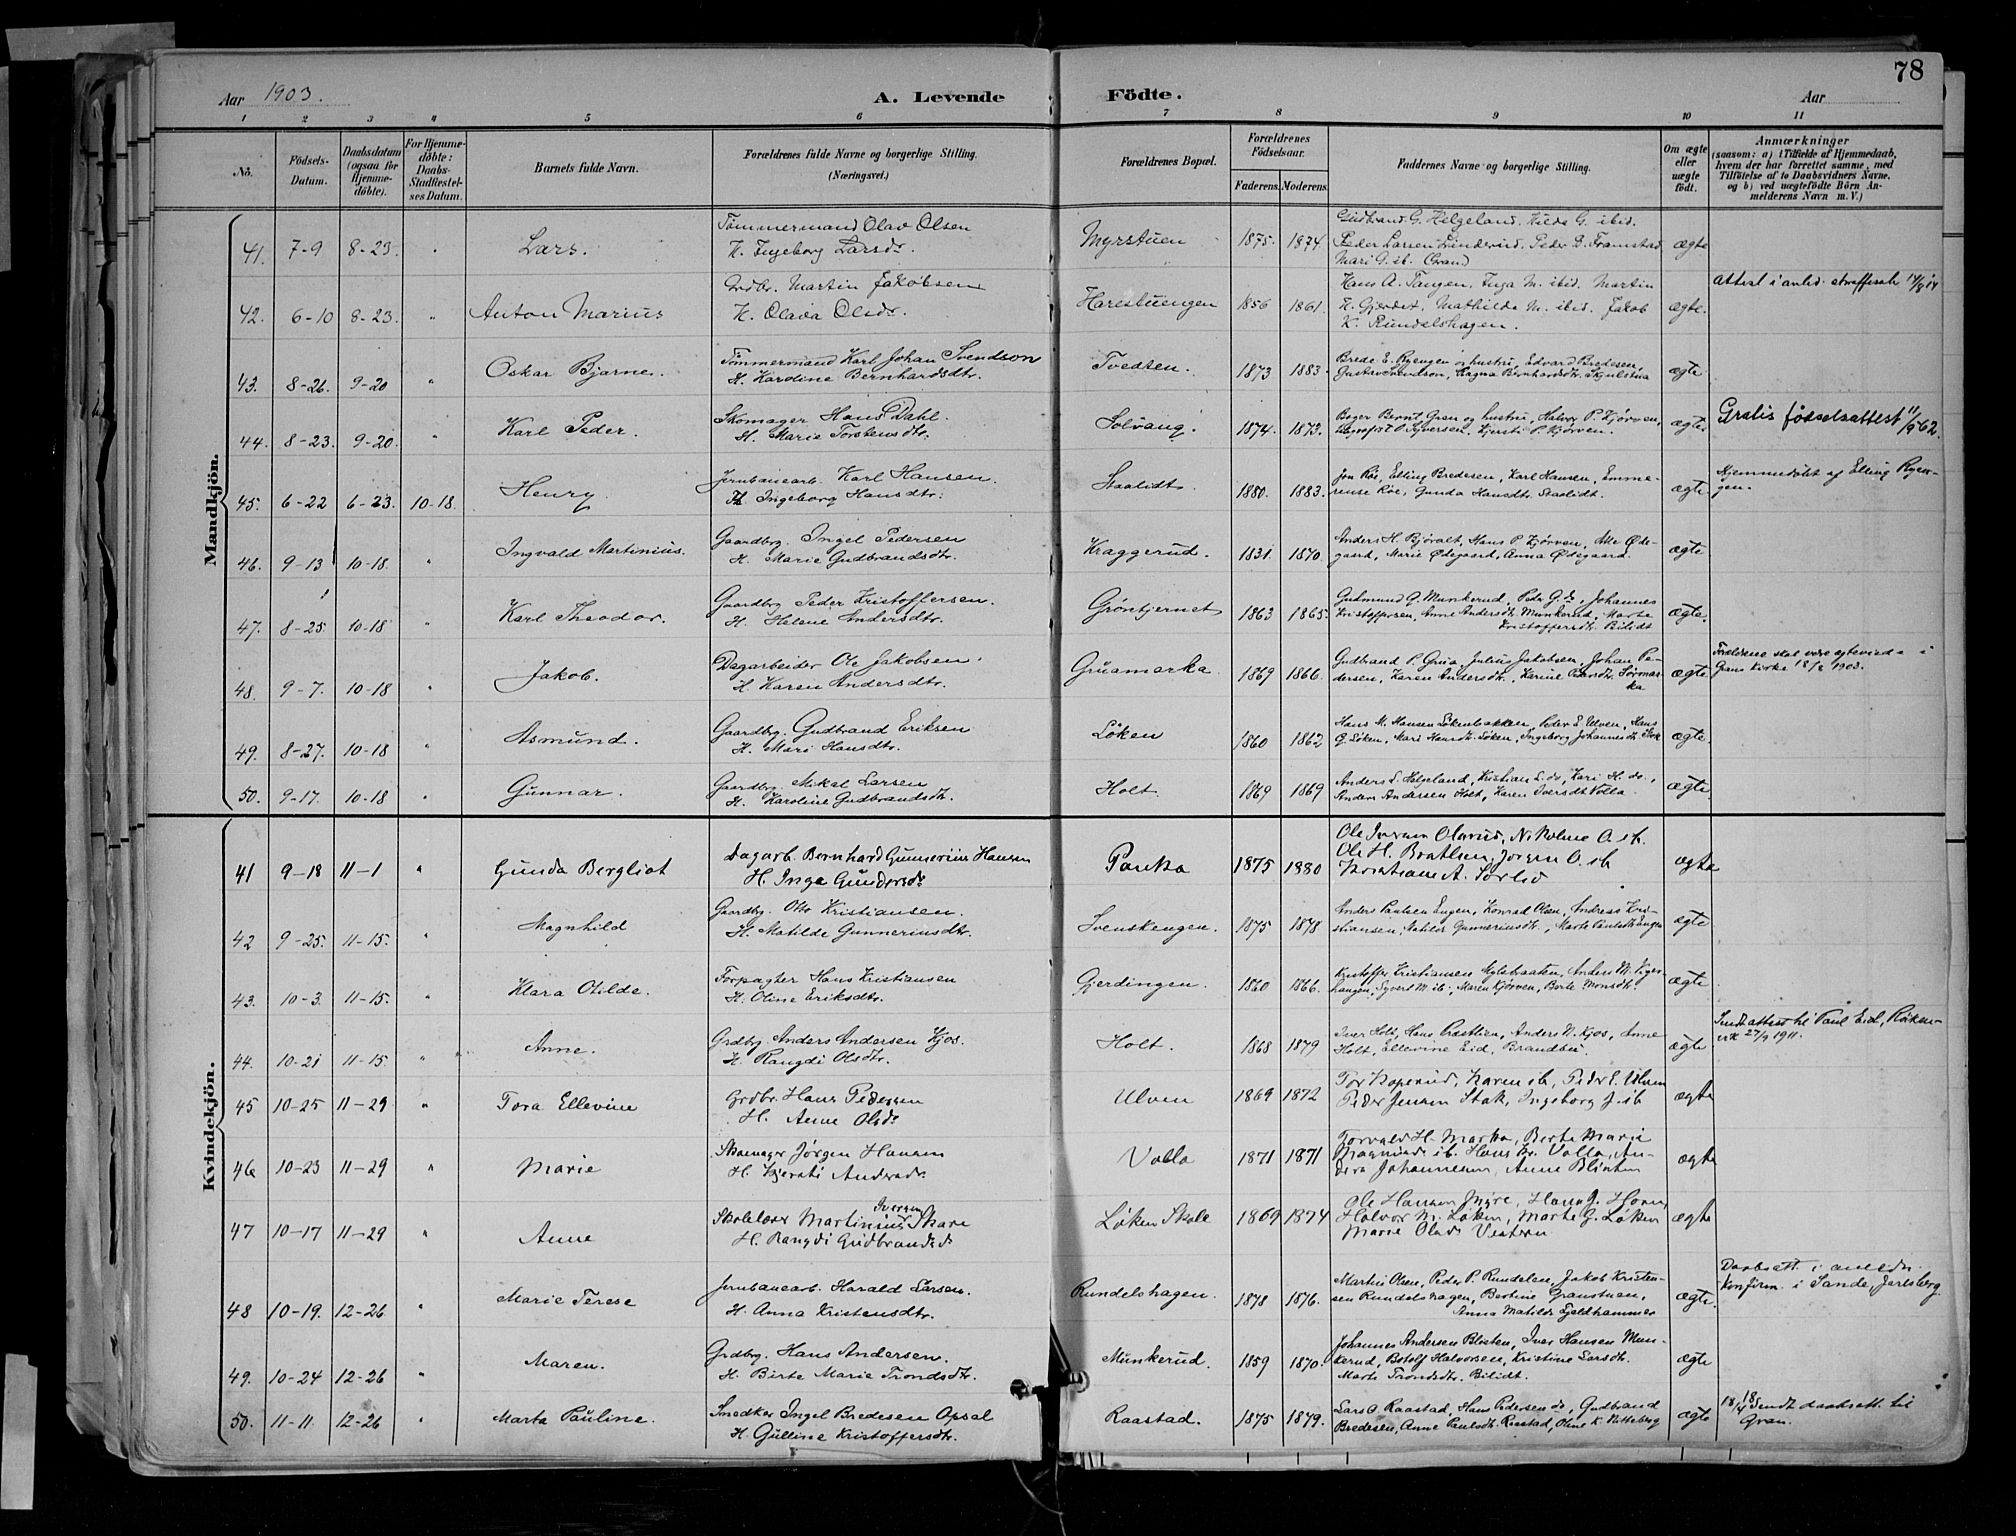 78
Aar 1903. A. Levende Födte. Aar
1 2 3 4 5 6 7 8 9 10 11
No. Födsels-Datum. Daabsdatum (ogsaa for Hjemme-döbte). For Hjemme-döbte: Daabs-Stadfæstel-ses Datum. Barnets fulde Navn. Forældrenes fulde Navne og borgerlige Stilling. (Næringsvei.) Forældrenes Bopæl. Forældrenes Födselsaar. Faderens. Moderens. Faddernes Navne og borgerlige Stilling. Om ægte eller uægte födt. Anmærkninger (saasom: a) i Tilfælde af Hjemmedaab, hvem der har forrettet samme, med Tilföielse af to Daabsvidners Navne, og b) ved uægtefödte Börn Anmelderens Navn m. V.)
Mandkjön.
41. 7-9 8-23. " Lars. Tømmermand Olav Olsen
H. Ingeborg Larsdr. Myrstuen 1875. 1874. Gudbrand G. Helgeland. Hilda G. ibid.
Peder Larsen Linderud. Peder L. Framstad
Mari G. ib. (Gran) ægte
42. 6-10 8-23. " Anton Marius Grdbr. Martin Jakobsen
H. Olava Olsdr. Harestuengen 1856 1861. Hans A. Tangen, Inga M. ibid. Martin
H. Gjerdet. Mathilde M. ibid. Jakob
K. Rundelshagen. ægte. Attest i anled. straffesak 14/8 14
43. 8-26. 9-20 " Oskar Bjarne. Tømmermand Karl Johan Svendson
H. Karoline Bernhardsdtr. Tvedten. 1873 1883. Brede E. Ryengen og hustru, Edvard Bredesen,
Gustav Svendson, Ragna Bernhardsdtr. ægte
44. 8-23. 9-20. " Karl Peder. Skomager Hans Dahl.
H. Marie Torstensdtr. Sølvang. 1874. 1873. Bager Bernt Gren og hustru, Halvor P. Kjørven,
Syversen, Kjersti P. Kjørven. ægte Gratis fødselsattest 11/9 62.
45. 6-22 6-23. 10-18. Henry Jernbanearb. Karl Hansen.
H. Ingeborg Hansdtr. Staalidt. 1880. 1883. Jon Röe, Elling Bredesen, Karl Hansen, Emme-
rense Röe, Gunda Hansdtr. Staalidt. ægte Hjemmedøbt af Elling Ryen-
gen.
46. 9-13 10-18. " Ingvald Martinius. Gaardbg. Ingel Pedersen
H. Marie Gudbrandsdtr. Kraggerud. 1831. 1870. Anders H. Bjøralt, Hans P. Kjørven, Atle Øde-
gaard, Marie Ødegaard, Anna Ødegaard. ægte
47. 8-25. 10-18 " Karl Theodor. Gaardbg Peder Kristoffersen.
H. Helene Andersdtr. Grøntjernet 1863 1865. Gudmund G. Munkerud, Peder G. do, Johannes
Kristoffersen, Anne Andersdtr. Munkerud, Marte
Kristoffersdtr. Bilidt ægte.
48. 9-7. 10-18 " Jakob. Dagarbeider Ole Jakobsen.
H. Karen Andersdtr. Gruamarka 1869 1866. Gudbrand P. Grua, Julius Jakobsen, Johan Pe-
dersen, Karen Andersdtr., Karine Pedersdtr. Sørmar-
ka ægte Forældrene skal være ægteviede i
Grans kirke 18/2 1903.
49. 8-27. 10-18 " Asmund. Gaardbg. Gudbrand Eriksen
H. Mari Hansdtr. Løken 1860 1862 Hans M. Hansen Løkenbakken, Peder E. Ulven, Hans
G. Løken, Mari Hansdtr. Løken, Ingeborg Johannesdtr. Stok ægte.
50. 9-17. 10-18 " Gunnar. Gaardbg. Mikal Larsen
H. Karoline Gudbrandsdtr. Holt. 1869 1869 Anders L. Helgeland, Kristian L. do, Kari H. do.,
Anders Andersen Holt, Karen Iversdt Volla. ægte.
Kvindekjön.
41 9-18 11-1 " Gunda Bergliot Dagarb. Bernhard Gunnerius Hansen
H. Inga Gundersdr Panka 1875 1880 Ole Iversen Olerud, Nikoline O. ib.
Ole H. Bratlsen, Jørgen O. ib
Kristiane A. Sørlid ægte
42 9-25. 11-15. " Magnhild Gaardbg. Otto Kristiansen.
H. Matilde Gunneriusdtr. Svenskengen. 1875 1878 Anders Paulsen Engen, Konrad Olsen, Andreas Kri-
stiansen, Matilde Gunneriusdtr., Marte Paulsdtr. Engen ægte
43. 10-3. 11-15. " Klara Otilde. Forpagter Hans Kristiansen
H. Oline Eriksdtr. Gjerdingen. 1860 1866. Kristoffer Kristiansen Mylsbraaten, Anders M. Viger-
haugen, Syvert M ib., Maren Kjørven, Berte Monsdtr. ægte
44. 10-21 11-15. " Anne. Grdbg. Anders Andersen Kjos.
H. Rangdi Olsdtr. Holt. 1868 1879 Iver Holt, Hans Præstlien, Anders N. Kjos, Anne
Holt, Ellevine Eid, Brandbu. ægte Sendt attest til Paul Eid, Røiken-
vik 27/9 1911.
45 10-25 11-29 " Tora Ellevine Grdbr. Hans Pedersen
H. Anne Olsdr Ulven 1869 1872 Tor Koperud, Karen ib, Peder E. Ulven
Peder Jensen Stok, Ingeborg J. ib ægte
46 10-23 11-29 " Marie Skomager Jørgen Hansen
H. Kjersti Andersdr. Volla 1871 1871 Torvald H. Marka, Berte Marie
Magnusdr ib. Hans Kr. Volla, An-
ders Johannesen, Anne Blisten ægte
47 10-17 11-29 " Anne Skolelærer Martinius Iversen Skare
H. Rangdi Gudbrandsdr Løken Skole 1869 1874 Ole Hansen Myre, Hans J. Horn,
Halvor M. Løken, Marte G. Løken
Marie Olsdr Vestern ægte
48 10-19. 12-26 " Marie Terese Jernbanearb. Harald Larsen.
H. Anna Kristensdtr. Rundelshagen. 1878 1876. Martin Olsen, Peder P. Rundelen, Jakob Kristen-
sen Rundelshagen, Bertine Granstuen,
Anna Matilde Fjeldhammer ægte. Daabsatt. i anledn.
Konfirm. i Sande, Jarlsberg.
49. 10-24 12-26 " Maren. Grdbg. Hans Andersen.
H. Birte Marie Trondsdtr. Munkerud. 1859 1870. Johannes Andersen Blisten, Iver Hansen Mun-
kerud, Botolf Halvorsen, Kristine Larsdtr.
Marte Trondsdtr. Bilidt. ægte
50. 11-11. 12-26 " Marta Pauline. Snedker Ingel Bredesen Opsal
H. Gulline Kristoffersdtr. Raastad. 1875 1879. Lars O. Raastad, Hans Pedersen do, Gudbrand
Bredesen, Anne Paulsdtr. Raastad, Oline K. Nitteberg ægte 18/4 18 Sendt daabsatt. til
Gran.